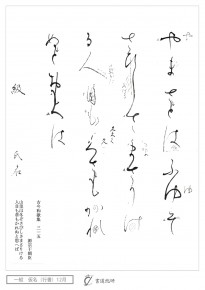 やまさとはふゆそ
さひしさまさりけ
る人目も草もかれ
ぬとおもへは
級 氏名
古今和歌集 三一五 源宗于朝臣
山里は冬ぞさびしさまさりける
人目も草もかれぬと思へば
12月